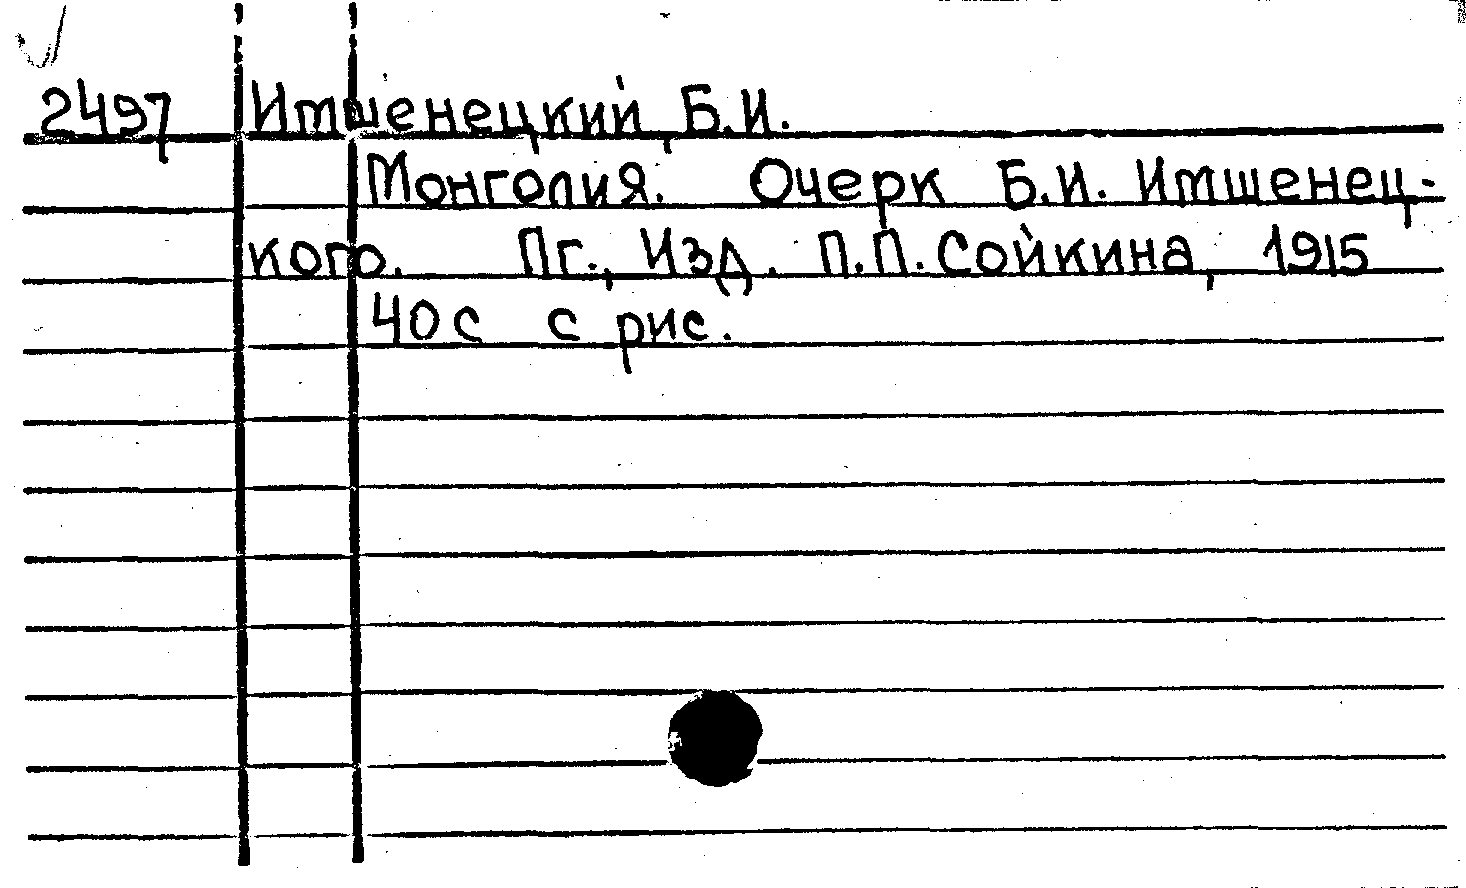 2497 Имшенецкий, Б.И.
Монголия. Очерк Б.И. Имшенец-
кого. Пг., Изд. П.П.Сойкина, 1915
40с с рис.